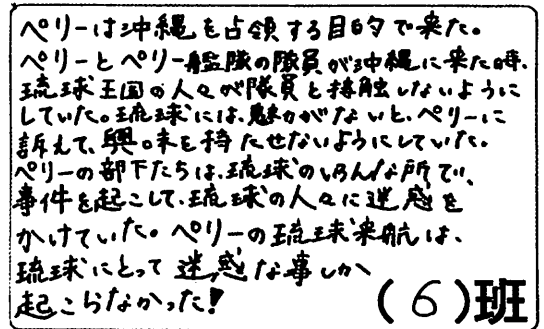 ペリーは沖縄を占領する目的で来た。
ペリーとペリー艦隊の隊員が沖縄に来た時、
琉球王国の人々が隊員と接触しないように
していた。琉球には、魅力がないと、ペリーに
訴えて、興味を持たせないようにしていた。
ペリーの部下たちは、琉球のいろんな所で、
事件を起こして、琉球の人々に迷惑を
かけていた。ペリーの琉球来航は、
琉球にとって迷惑な事しか
起こらなかった!
(6)班